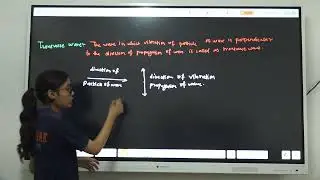 Transverse wave: The wave in which vibration of particle of wave is perpendicular
to the direction of propagation of wave is called as transverse wave.
direction of
Particle of wave
direction of vibration
propagation of wave.